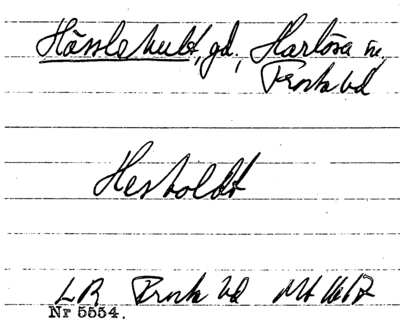 Hässlehult, gd, Harlösa sn,
Frosta hd
Hesholdt
LR Frosta hd
Nr 5554.